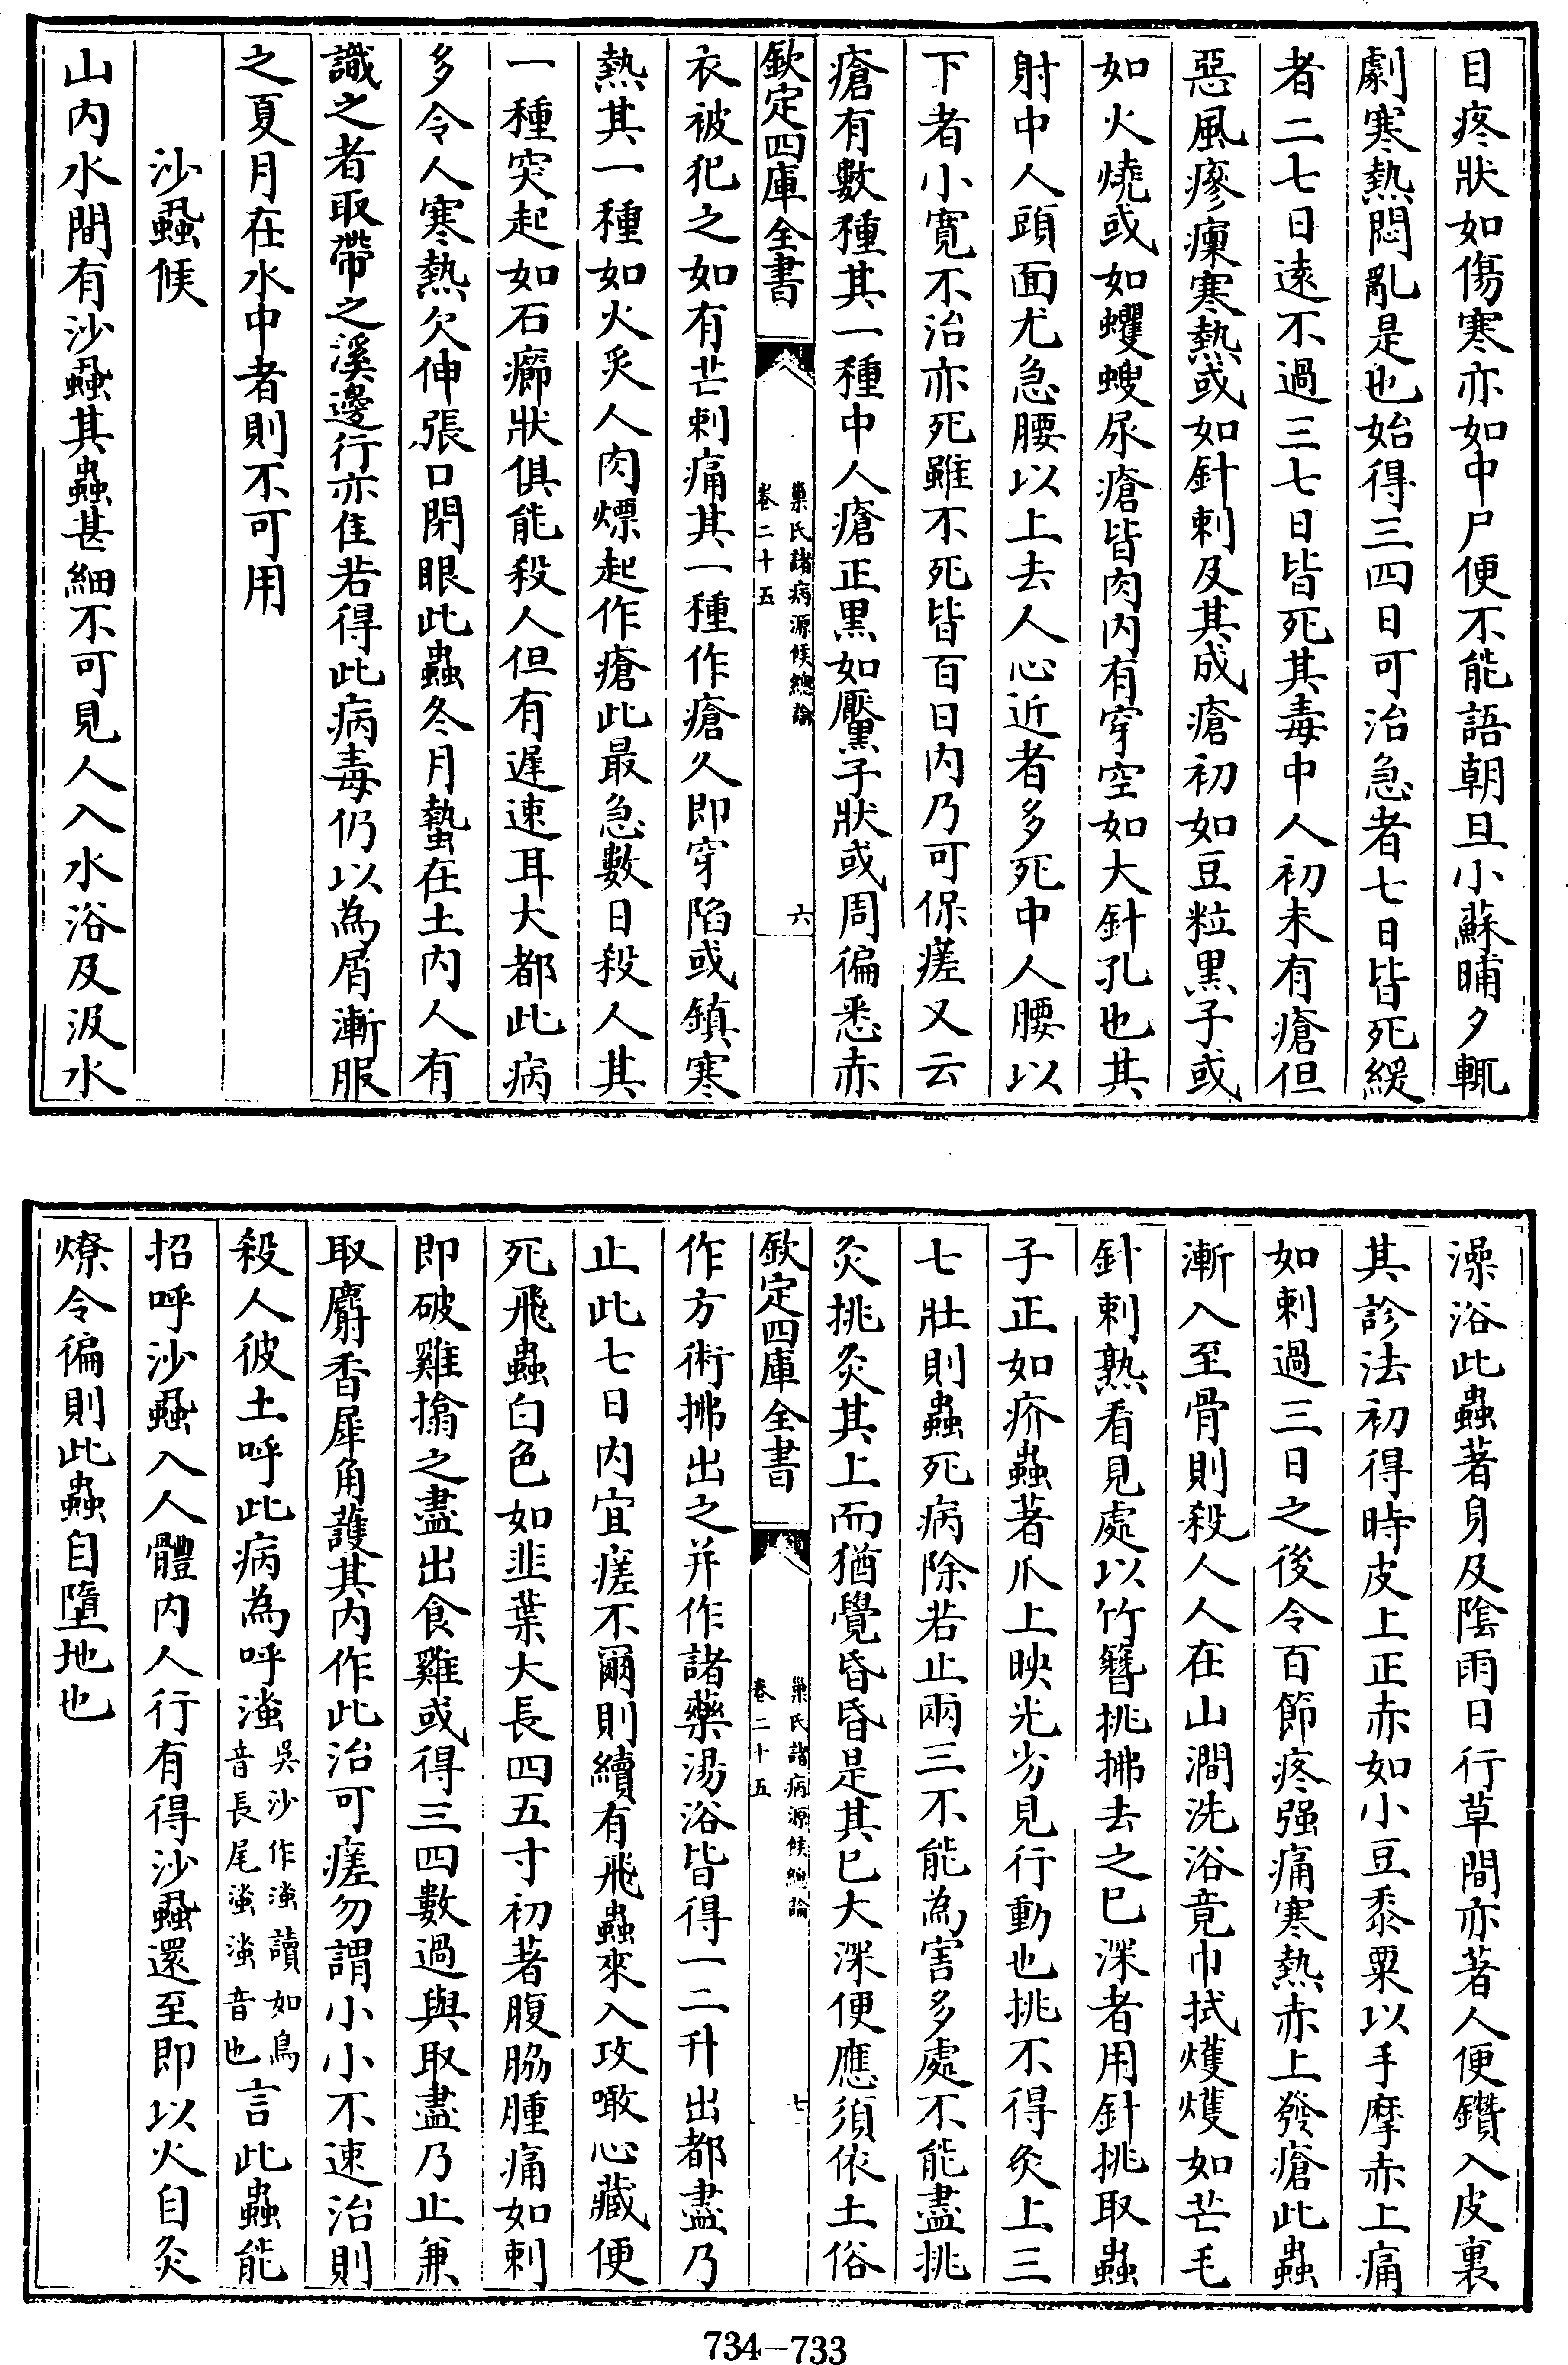 目疼狀如傷寒亦如中尸便不能語朝旦小蘇晡夕輒
劇寒熱悶亂是也始得三四日可治急者七日皆死緩
者二七日遠不過三七日皆死其毒中人初未有瘡但
惡風㾕瘰寒熱或如針刺及其成瘡初如豆粒黑子或
如火燒或如蠼螋尿瘡皆肉内有穿空如大針孔也其
射中人頭面尤急腰以上去人心近者多死中人腰以
下者小寬不治亦死雖不死皆百日内乃可保瘥又云
瘡有數種其一種中人瘡正黑如黶子狀或周徧悉赤
欽定四庫全書
巢氏諸病源候總論
卷二十五
六
衣被犯之如有芒刺痛其一種作瘡久即穿陷或鎮寒
熱其一種如火炙人肉熛起作瘡此最急數日殺人其
一種突起如石癤狀俱能殺人但有遲速耳大都此病
多令人寒熱欠伸張口閉眼此蟲冬月蟄在土内人有
識之者取帶之溪邊行亦佳若得此病毒仍以為屑漸服
之夏月在水中者則不可用
沙蝨候
山内水間有沙蝨其蟲甚細不可見人入水浴及汲水
澡浴此蟲著身及陰雨日行草間亦著人便鑽入皮裏
其診法初得時皮上正赤如小豆黍粟以手摩赤上痛
如刺過三日之後令百節疼强痛寒熱赤上發瘡此蟲
漸入至骨則殺人人在山澗洗浴竟巾拭㸌㸌如芒毛
針刺熟看見處以竹簪挑拂去之已深者用針挑取蟲
子正如疥蟲著爪上映光劣見行動也挑不得灸上三
七壯則蟲死病除若止兩三不能為害多處不能盡挑
灸挑灸其上而猶覺昏昏是其已大深便應須依土俗
欽定四庫全書
巢氏諸病源候總論
卷二十五
七
作方術拂出之并作諸藥湯浴皆得一二升出都盡乃
止此七日内宜瘥不爾則續有飛蟲來入攻噉心藏便
死飛蟲白色如韭葉大長四五寸初著腹脇腫痛如刺
即破雞搨之盡出食雞或得三四數過與取盡乃止兼
取麝香犀角護其内作此治可瘥勿謂小小不速治則
殺人彼土呼此病為呼㴿吳沙作㴿讀如鳥音長尾㴿㴿音也言此蟲能
招呼沙蝨入人體内人行有得沙蝨還至即以火自灸
燎令徧則此蟲自墮地也
734－733